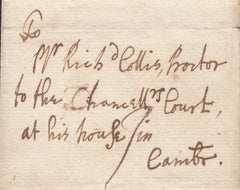 To
Mr Richd Collis, Proctor
to the Chancellrs Court,
at his house in
Cambr.